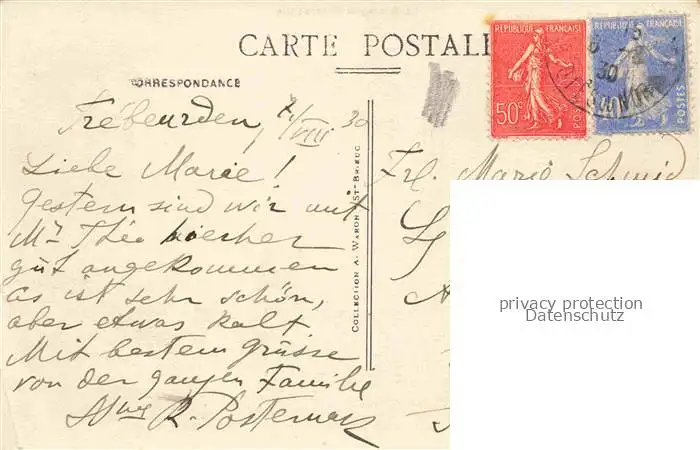 CARTE POSTALE
CORRESPONDANCE
Trébeurden, 7/VIII 30
Liebe Marie!
gestern sind wir mit
Mr Théo hierher
gut angekommen
es ist sehr schön,
aber etwas kalt
Mit bestem grüsse
von der ganzen Familie
R.
COLLECTION A. WARON ST-BRIEUC
REPUBLIQUE FRANÇAISE
50c
POSTES
REPUBLIQUE FRANÇAISE
POSTES
30
Frl. Marie Schmid
privacy protection
Datenschutz